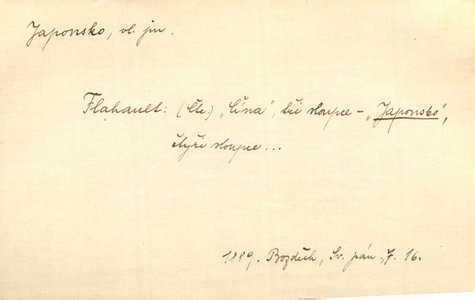 Japonsko, vl. jm.
Flahault: (čte) „Čína“, tři sloupce – „Japonsko“,
čtyři sloupce...
1889. Bozděch, Sv. pán, 7. 16.